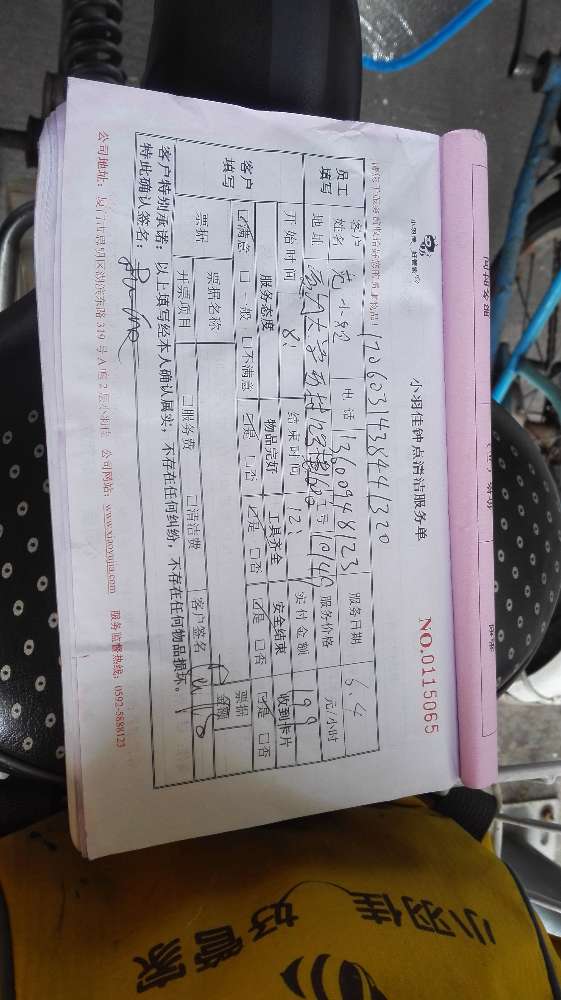 小羽佳，好管家
小羽佳钟点清洁服务单
NO.0115065
1706031438441320
员工填写
客户姓名
电话 13600948123
服务日期 6.4
地址
服务价格 元/小时
开始时间 8:
结束时间 12:
实付金额 199
客户填写
服务态度 物品完好 工具齐全 安全结束 收到卡片
☑满意 □一般 □不满意 ☑是 □否 ☑是 □否 ☑是 □否 ☑是 □否
票据 票据名称 客户签名 票据金额
开票项目 □服务费 □清洁费
客户特别承诺：以上填写经本人确认属实，不存在任何纠纷，不存在任何物品损坏。
特此确认签名：
公司地址：厦门市思明区湖滨东路319号A座2层小羽佳 公司网站：www.xiaoyujia.com 服务监督热线：0592-5888123
小羽佳 好管家